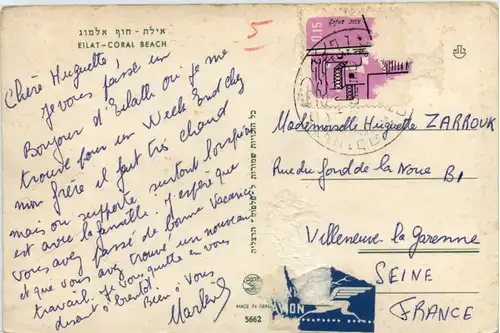 אילת - חוף אלמוג
EILAT-CORAL BEACH
Chère Huguette,
Je vous passe un
Bonjour d'Eilath où je me
trouve pour un Week End chez
mon frère il fait très chaud
mais on supporte surtout lorsqu'on
est avec la famille. J'espère que
vous avez passé de bonne vacances
et que vous avez trouvé un nouveau
travail. Je vous quitte en vous
disant à bientôt. Bien à Vous
5
כל הזכויות שמורות
MADE IN
5662
0.15
Mademoiselle Huguette ZARROUK
Rue du fond de la Noue B1
Villeneuve la Garenne
SEINE
FRANCE